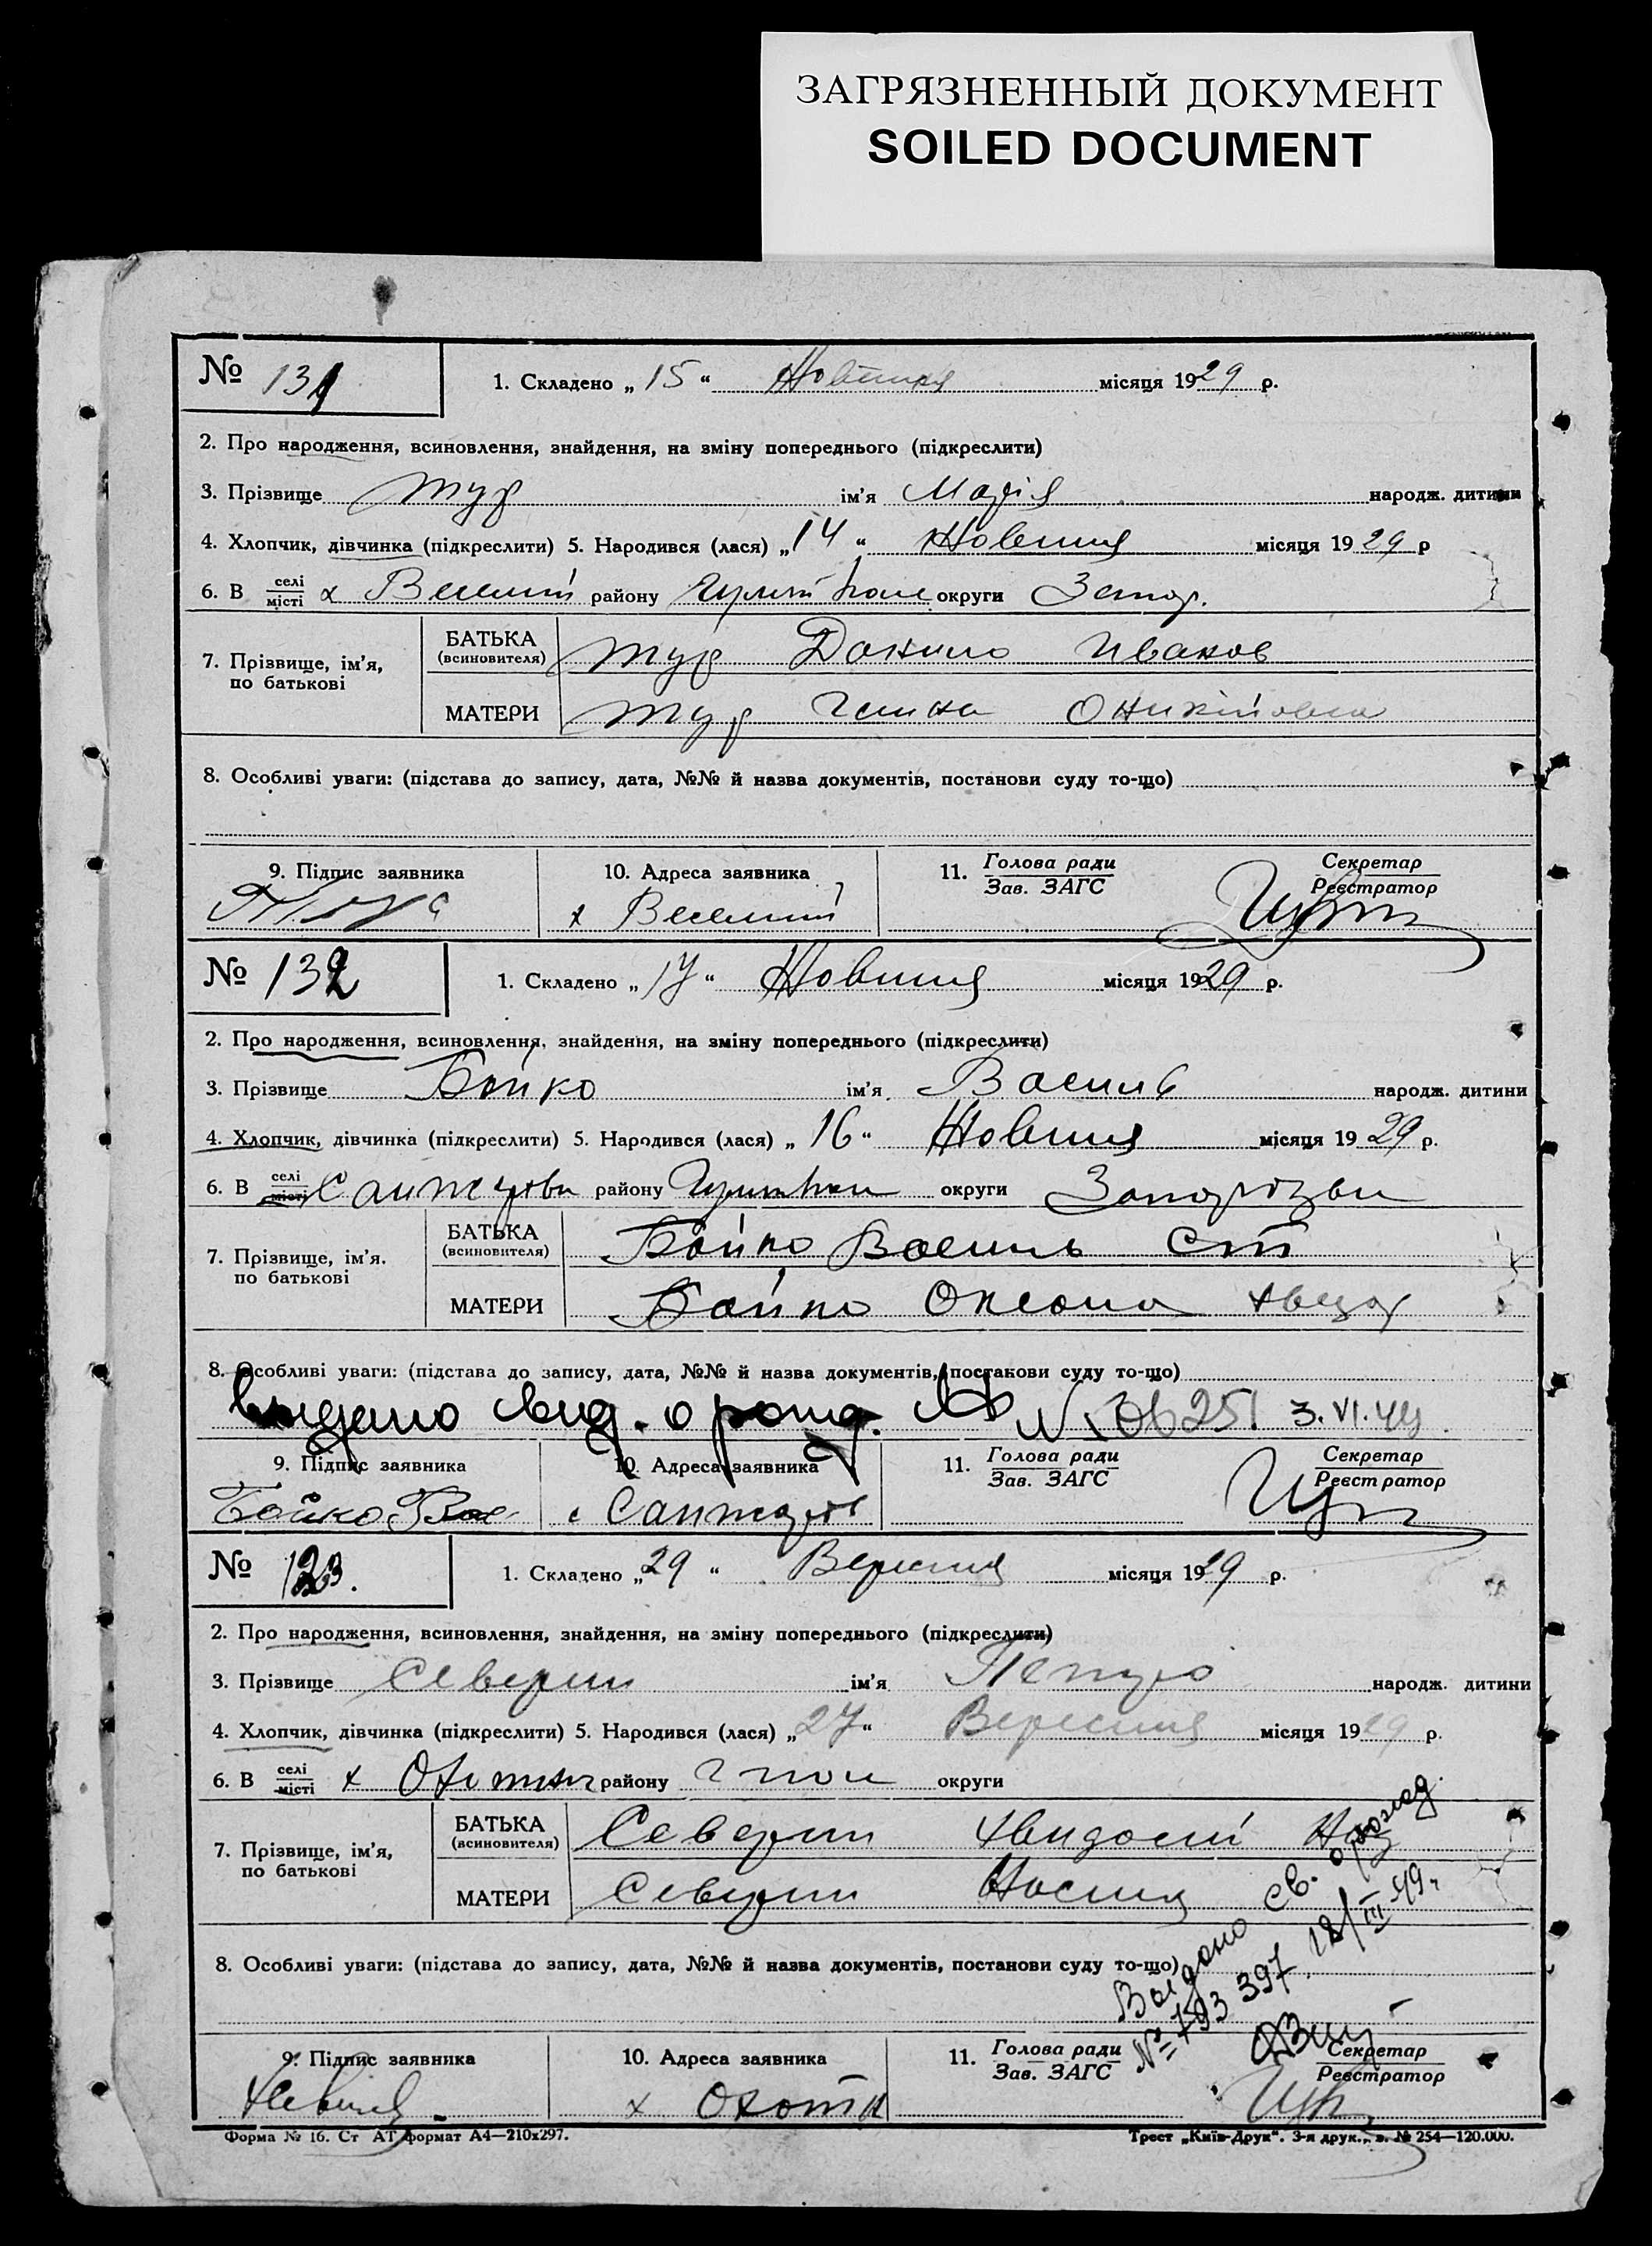 ЗАГРЯЗНЕННЫЙ ДОКУМЕНТ
SOILED DOCUMENT
№ 131 1. Складено „ 15 “ Жовтня місяця 1929 р.
2. Про народження, всиновлення, знайдення, на зміну попереднього (підкреслити)
3. Прізвище Тур ім'я Марія народж. дитини
4. Хлопчик, дівчинка (підкреслити) 5. Народився (лася) „ 14 “ Жовтня місяця 1929 р
6. В селі місті х Веселий району округи Запор.
7. Прізвище, ім'я, по батькові
БАТЬКА (всиновителя) Тур Данило Иванов
МАТЕРИ Тур Оникіiовна
8. Особливі уваги: (підстава до запису, дата, №№ й назва документів, постанови суду то-що)
9. Підпис заявника 10. Адреса заявника 11. Голова ради Зав. ЗАГС Секретар Реєстратор
х Веселий
№ 132 1. Складено „ 17 “ Жовтня місяця 1929 р.
2. Про народження, всиновлення, знайдення, на зміну попереднього (підкреслити)
3. Прізвище Бойко ім'я Василь народж. дитини
4. Хлопчик, дівчинка (підкреслити) 5. Народився (лася) „ 16 “ Жовтня місяця 1929 р.
6. В селі місті району округи
7. Прізвище, ім'я. по батькові
БАТЬКА (всиновителя) Бойко Василь Ст
МАТЕРИ Бойко Оксана
8. Особливі уваги: (підстава до запису, дата, №№ й назва документів, постанови суду то-що)
видано свид. о рожд. № 3.VI.44
9. Підпис заявника 10. Адреса заявника 11. Голова ради Зав. ЗАГС Секретар Реєстратор
Бойко Вас
№ 123. 1. Складено „ 29 “ Вересня місяця 1929 р.
2. Про народження, всиновлення, знайдення, на зміну попереднього (підкреслити)
3. Прізвище Северин ім'я Петро народж. дитини
4. Хлопчик, дівчинка (підкреслити) 5. Народився (лася) „ 27 “ Вересня місяця 1929 р.
6. В селі місті х району округи
7. Прізвище, ім'я, по батькові
БАТЬКА (всиновителя) Северин
МАТЕРИ Северин
8. Особливі уваги: (підстава до запису, дата, №№ й назва документів, постанови суду то-що)
Выдано св. о рожд.
№ 793 397 12/III 49г.
9. Підпис заявника 10. Адреса заявника 11. Голова ради Зав. ЗАГС Секретар Реєстратор
х
Форма № 16. Ст АТ формат А4—210х297. Трест „Київ-Друк“. 3-я друк., з. № 254—120.000.